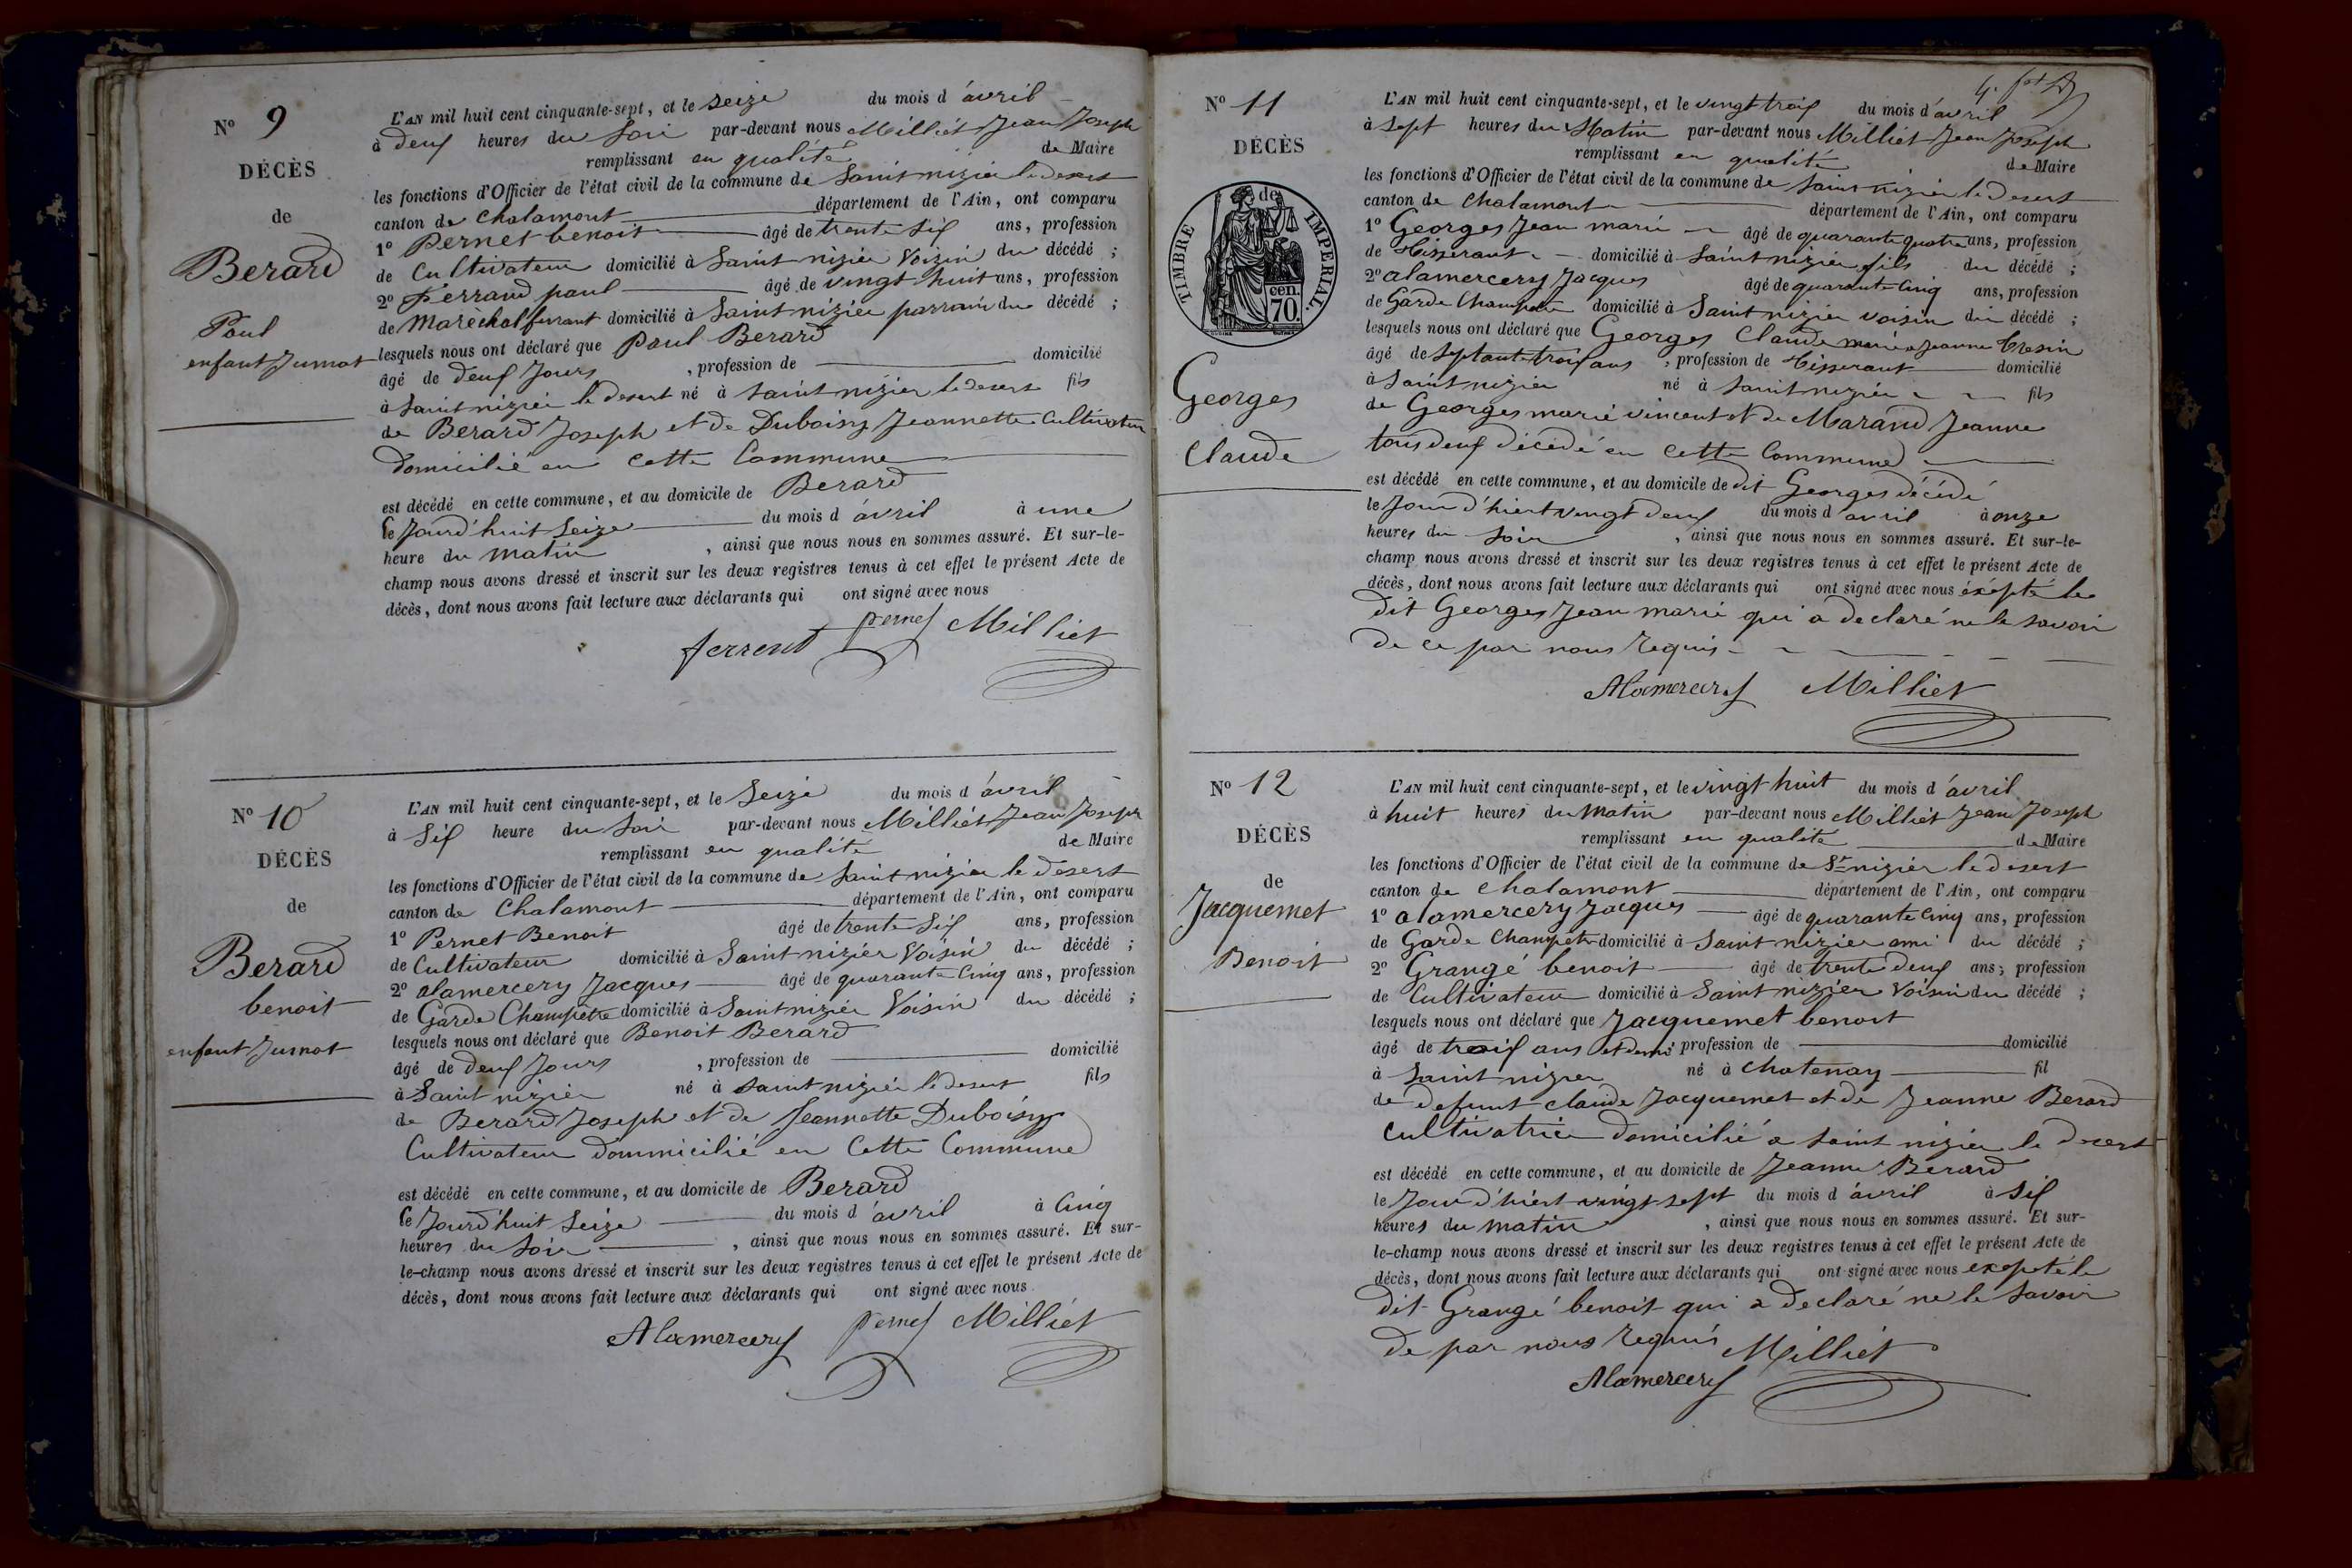 N° 9
DÉCÈS
de
Berard
Paul
enfant Jumot
L'AN mil huit cent cinquante-sept, et le Seize du mois d'avril
à deux heures du Soir par-devant nous Milliet Jean Joseph
remplissant en qualité de Maire
les fonctions d'Officier de l'état civil de la commune de Saint nizier le desert
canton de Chalamont département de l'Ain, ont comparu
1° Pernet benoit âgé de trente Six ans, profession
de Cultivateur domicilié à Saint nizier Voisin du décédé ;
2° Ferrand paul âgé de vingt huit ans, profession
de Maréchal ferrant domicilié à Saint nizier parrain du décédé ;
lesquels nous ont déclaré que Paul Berard
âgé de deux Jours , profession de domicilié
à Saint nizier le desert né à Saint nizier le desert fils
de Berard Joseph et de Duboisy Jeannette Cultivateur
domicilié en Cette Commune
est décédé en cette commune, et au domicile de Berard
Ce Jourd'huit Seize du mois d'avril à une
heure du matin , ainsi que nous nous en sommes assuré. Et sur-le-
champ nous avons dressé et inscrit sur les deux registres tenus à cet effet le présent Acte de
décès, dont nous avons fait lecture aux déclarants qui ont signé avec nous
ferrent Pernet Milliet
N° 10
DÉCÈS
de
Berard
benoit
enfant Jumot
L'AN mil huit cent cinquante-sept, et le Seize du mois d'avril
à Six heure du Soir par-devant nous Milliet Jean Joseph
remplissant en qualité de Maire
les fonctions d'Officier de l'état civil de la commune de Saint nizier le desert
canton de Chalamont département de l'Ain, ont comparu
1° Pernet Benoit âgé de trente Six ans, profession
de Cultivateur domicilié à Saint nizier Voisin du décédé ;
2° alamercery Jacques âgé de quarante Cinq ans, profession
de Garde Champetre domicilié à Saint nizier Voisin du décédé ;
lesquels nous ont déclaré que Benoit Berard
âgé de deux Jours , profession de domicilié
à Saint nizier né à Saint nizier le desert fils
de Berard Joseph et de Jeannette Duboisy
Cultivateur dommicilié en Cette Commune
est décédé en cette commune, et au domicile de Berard
Ce Jourd'huit Seize du mois d'avril à Cinq
heures du Soir , ainsi que nous nous en sommes assuré. Et sur-
le-champ nous avons dressé et inscrit sur les deux registres tenus à cet effet le présent Acte de
décès, dont nous avons fait lecture aux déclarants qui ont signé avec nous
Alamercery Pernet Milliet
N° 11
DÉCÈS
de
TIMBRE IMPERIAL.
cen.
70.
Georges
Claude
L'AN mil huit cent cinquante-sept, et le vingt trois du mois d'avril
à Sept heures du Matin par-devant nous Milliet Jean Joseph
remplissant en qualité de Maire
les fonctions d'Officier de l'état civil de la commune de Saint nizier le Desert
canton de Chalamont département de l'Ain, ont comparu
1° Georges Jean marie âgé de quarante quatre ans, profession
de tisserant domicilié à Saint nizier fils du décédé ;
2° alamercery Jacques âgé de quarante Cinq ans, profession
de Garde Champetre domicilié à Saint nizier voisin du décédé ;
lesquels nous ont déclaré que Georges Claude marié a Jeanne
âgé de Septante trois ans , profession de tisserant domicilié
à Saint nizier né à Saint nizier fils
de Georges marie vincent et de Marand Jeanne
tous deux décédé en cette Commune
est décédé en cette commune, et au domicile de dit Georges décédé
le Jour d'hiert vingt deux du mois d'avril à onze
heures du Soir , ainsi que nous nous en sommes assuré. Et sur-le-
champ nous avons dressé et inscrit sur les deux registres tenus à cet effet le présent Acte de
décès, dont nous avons fait lecture aux déclarants qui ont signé avec nous éxépté le
dit Georges Jean marie qui a declaré ne le savoir
de ce par nous requis
Alamercery Milliet
N° 12
DÉCÈS
de
Jacquemet
Benoit
L'AN mil huit cent cinquante-sept, et le vingt huit du mois d'avril
à huit heures du Matin par-devant nous Milliet Jean Joseph
remplissant en qualité de Maire
les fonctions d'Officier de l'état civil de la commune de St nizier le desert
canton de Chalamont département de l'Ain, ont comparu
1° alamercery Jacques âgé de quarante Cinq ans, profession
de Garde Champetr domicilié à Saint nizier ami du décédé ;
2° Grangé benoit âgé de trente deux ans, profession
de Cultivateur domicilié à Saint nizier Voisin du décédé ;
lesquels nous ont déclaré que Jacquemet benoit
âgé de trois ans et demi profession de domicilié
à Saint nizier né à Chatenay fil
de defunt Claude Jacquemet et de Jeanne Berard
Cultivatrice domicilié a Saint nizier le desert
est décédé en cette commune, et au domicile de Jeanne Berard
le Jour d'hiert vingt sept du mois d'avril à Six
heures du matin , ainsi que nous nous en sommes assuré. Et sur-
le-champ nous avons dressé et inscrit sur les deux registres tenus à cet effet le présent Acte de
décès, dont nous avons fait lecture aux déclarants qui ont signé avec nous excepté le
dit Grangé benoit qui a declaré ne le savoir
de par nous requis Milliet
Alamercery